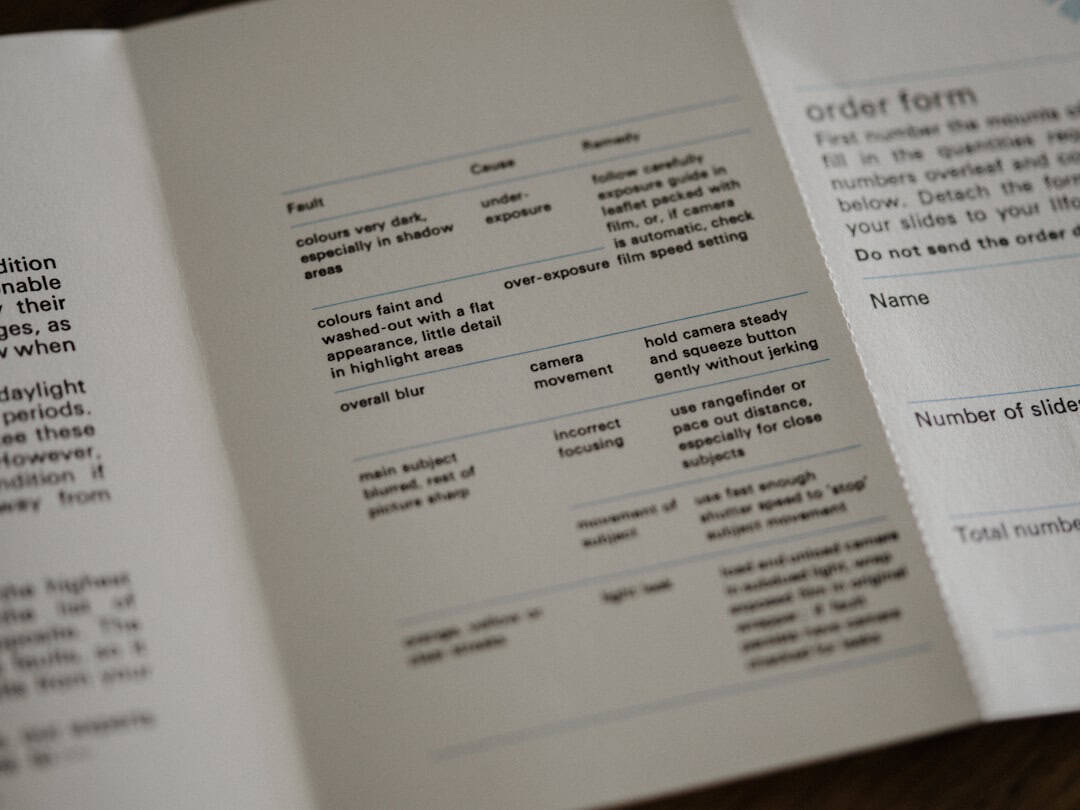 dition
nable
their
ges, as
w when
daylight
periods.
ee these
However,
ndition if
way from
the highest
the list of
The
faults, as it
from your
experts
Fault
Cause
Remedy
colours very dark,
especially in shadow
areas
under-
exposure
follow carefully
exposure guide in
leaflet packed with
film, or, if camera
is automatic, check
film speed setting
colours faint and
washed-out with a flat
appearance, little detail
in highlight areas
over-exposure
overall blur
camera
movement
hold camera steady
and squeeze button
gently without jerking
main subject
blurred, rest of
picture sharp
incorrect
focusing
use rangefinder or
pace out distance,
especially for close
subjects
movement of
subject
use fast enough
shutter speed to 'stop'
subject movement
orange, yellow or
light leak
load and unload camera
in subdued light, wrap
exposed film in original
if fault
camera
order form
First number the mounts
fill in the quantities
numbers overleaf and
below. Detach the form
your slides to your
Do not send the order
Name
Number of slides
Total numbe